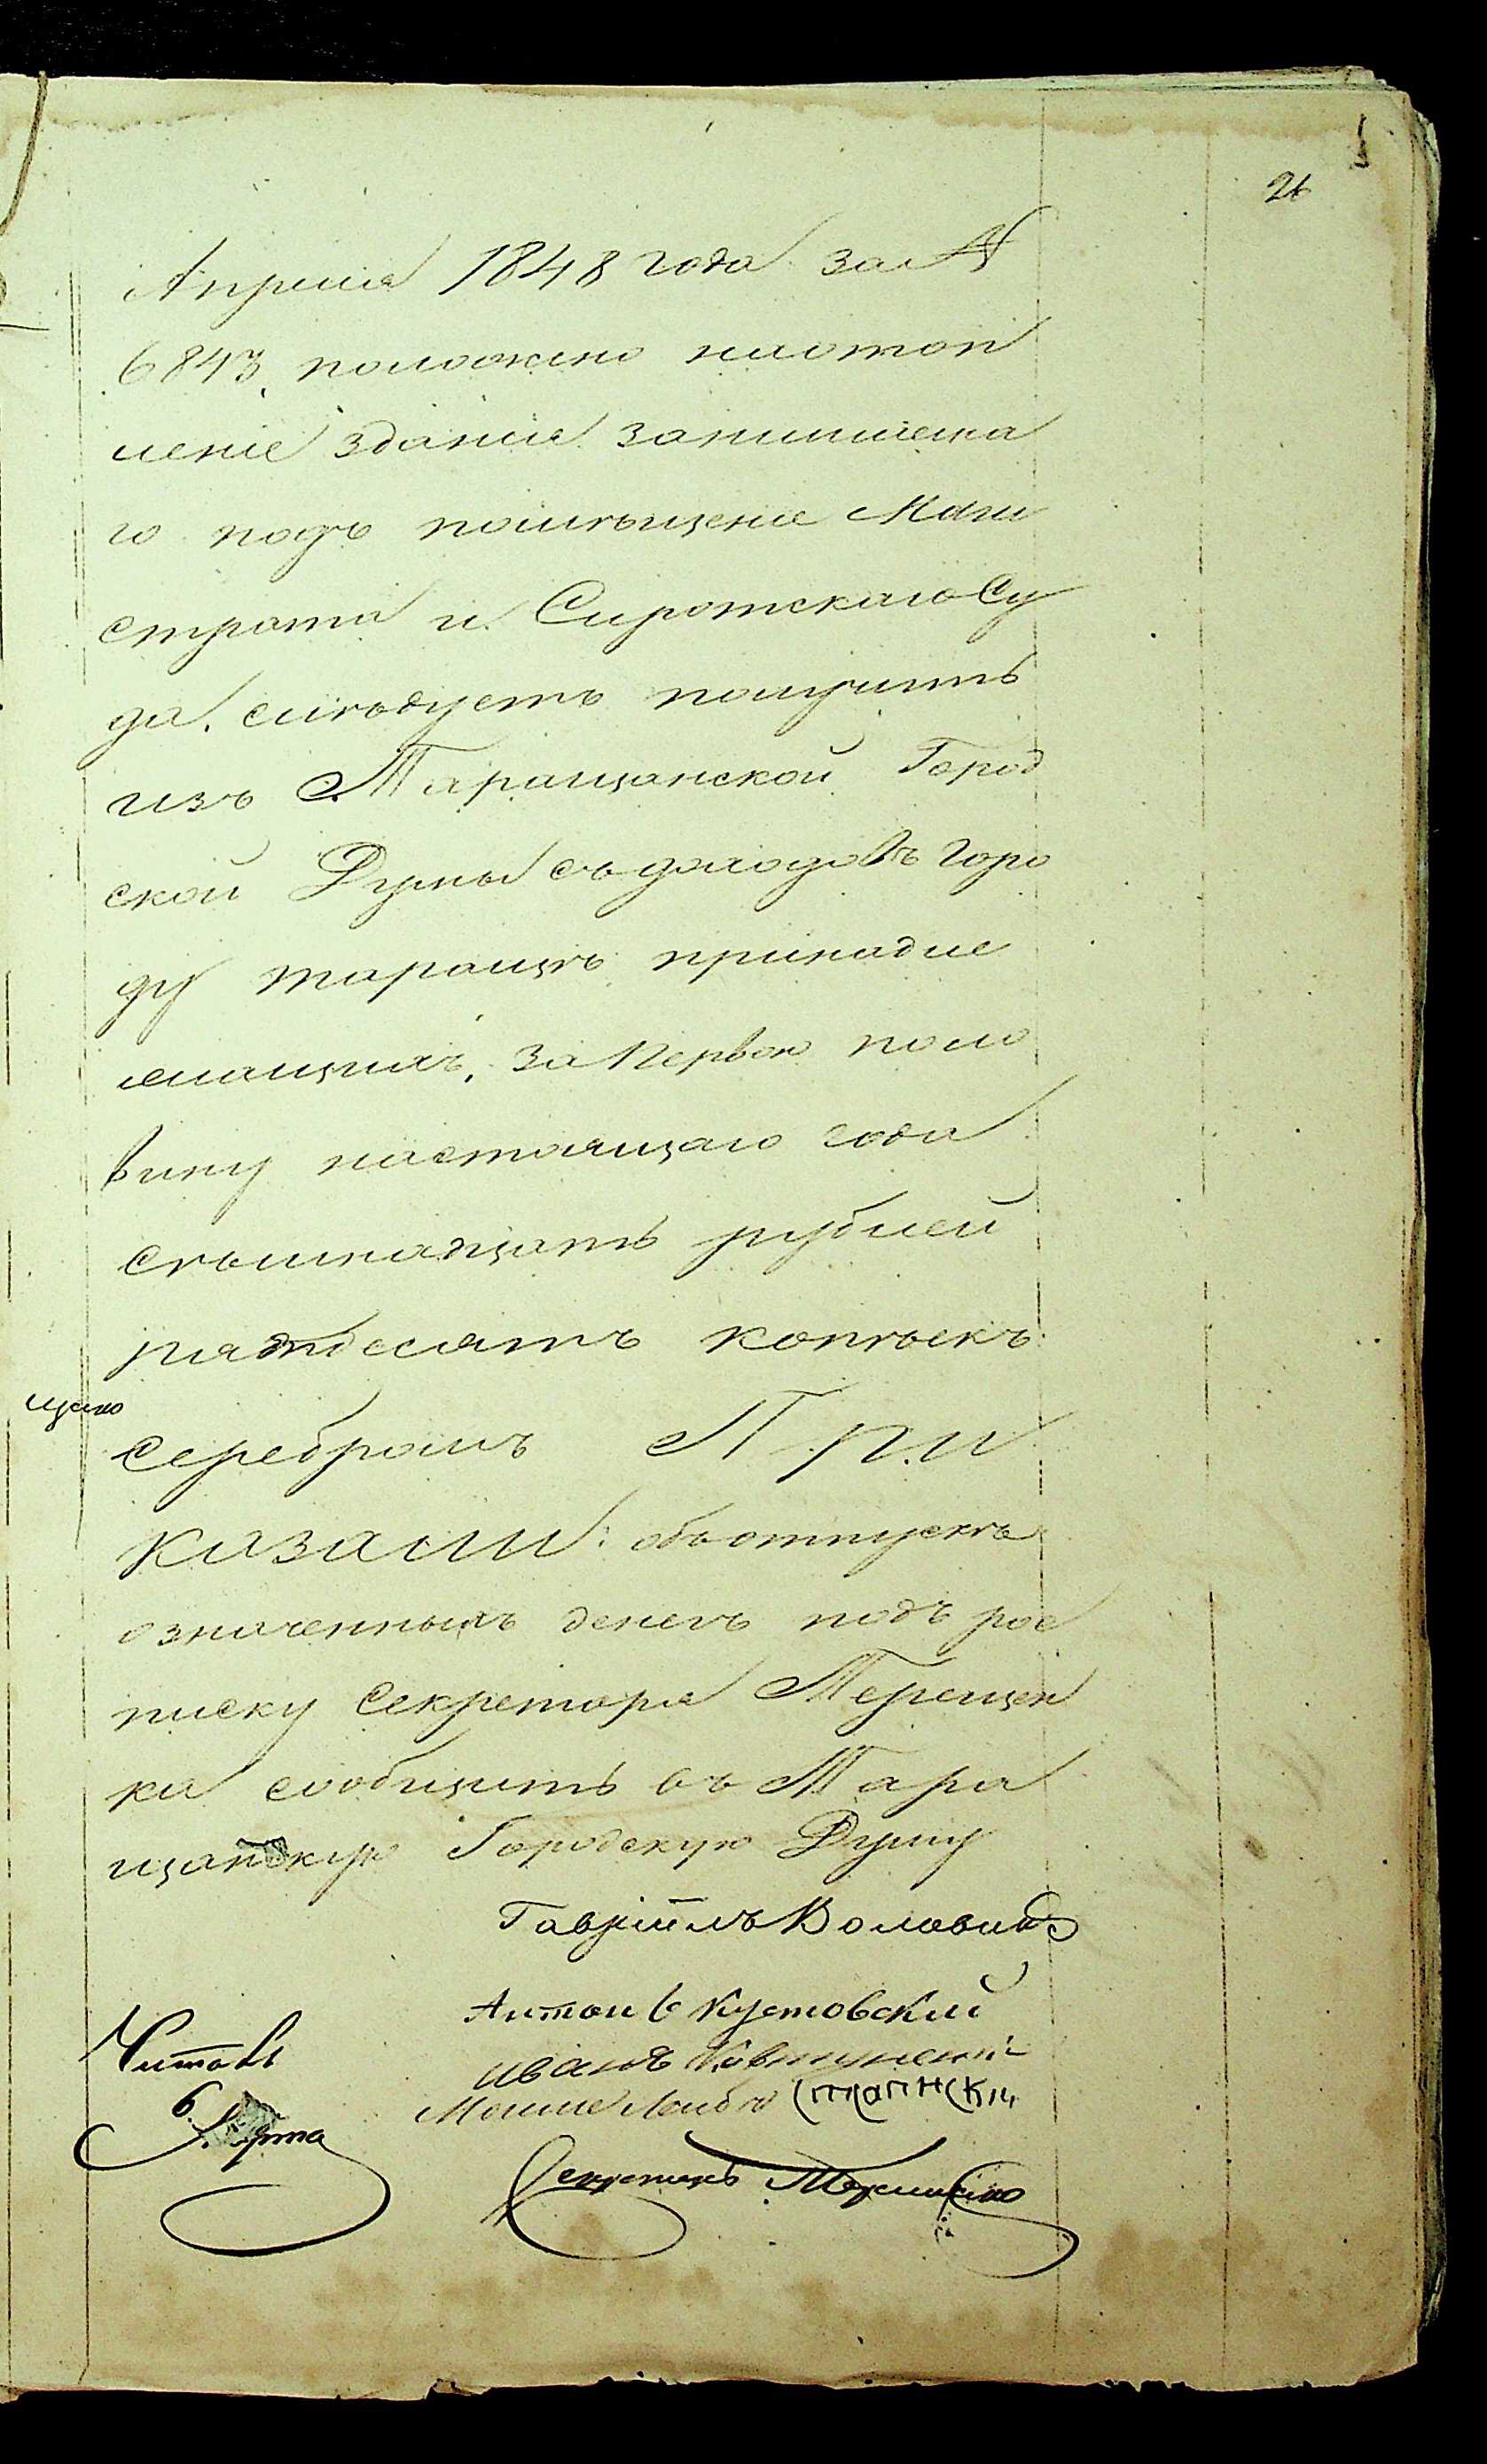 26
Апреля 1848 года за №
6843, положено наотоп
леніе зданія занимаема
го подъ помѣщеніе Маги
страта и Сиротскаго Су
да, слѣдуетъ получить
изъ Таращанской Город
ской Думы съ доходовъ горо
ду таращѣ принадле
жащихъ, за первою поло
вину настоящаго года
сѣмнадцать рублей
пятдесятъ копѣекъ
серебромъ При
казали: объ отпускѣ
означенныхъ денегъ подъ рос
писку Секретаря Терещен
ка сообщить въ Тара
щанскую Городскую Думу
Гавріилъ Воловикъ
Антон Кустовский
Иванъ
Мошие Лейба
Читалъ
Секретарь Терещенко